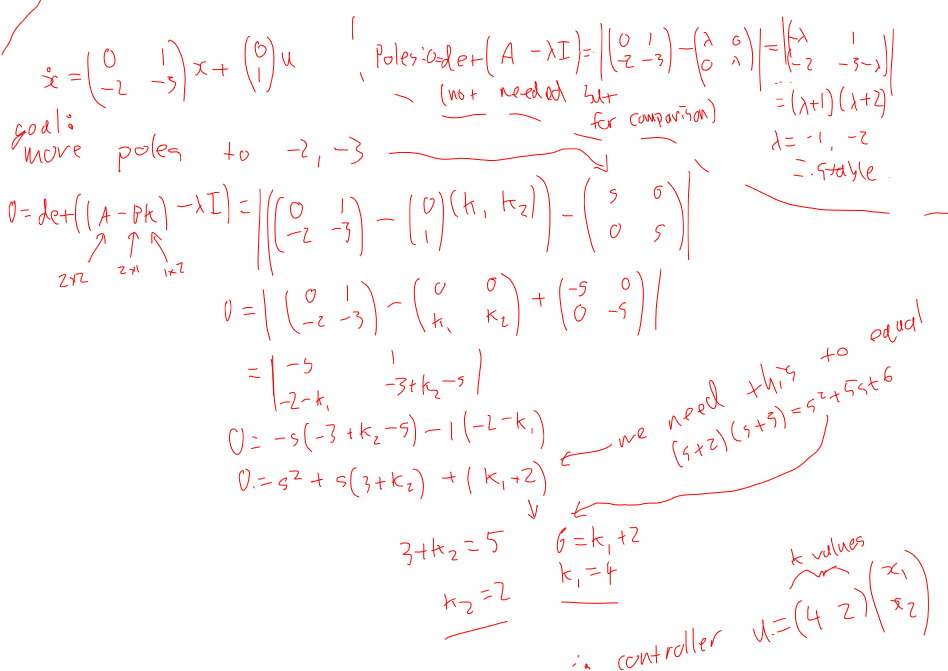 ẋ = (0 1; -2 -3) x + (0; 1) u
Poles: 0=det(A - λI) = |(0 1; -2 -3) - (λ 0; 0 λ)| = |(-λ 1; -2 -3-λ)|
(not needed but
for comparison)
= (λ+1)(λ+2)
λ = -1, -2
= stable
goal:
move poles to -2, -3
0 = det((A - BK) - λI) = |((0 1; -2 -3) - (0; 1)(k₁ k₂)) - (s 0; 0 s)|
2x2 2x1 1x2
0 = |(0 1; -2 -3) - (0 0; k₁ k₂) + (-s 0; 0 -s)|
= |-s 1; -2-k₁ -3+k₂-s|
0 = -s(-3+k₂-s) - 1(-2-k₁)
0 = s² + s(3+k₂) + (k₁+2)
we need this to equal
(s+2)(s+3) = s²+5s+6
3+k₂ = 5
6 = k₁+2
k₂ = 2
k₁ = 4
k values
controller u = (4 2)(x₁; x₂)